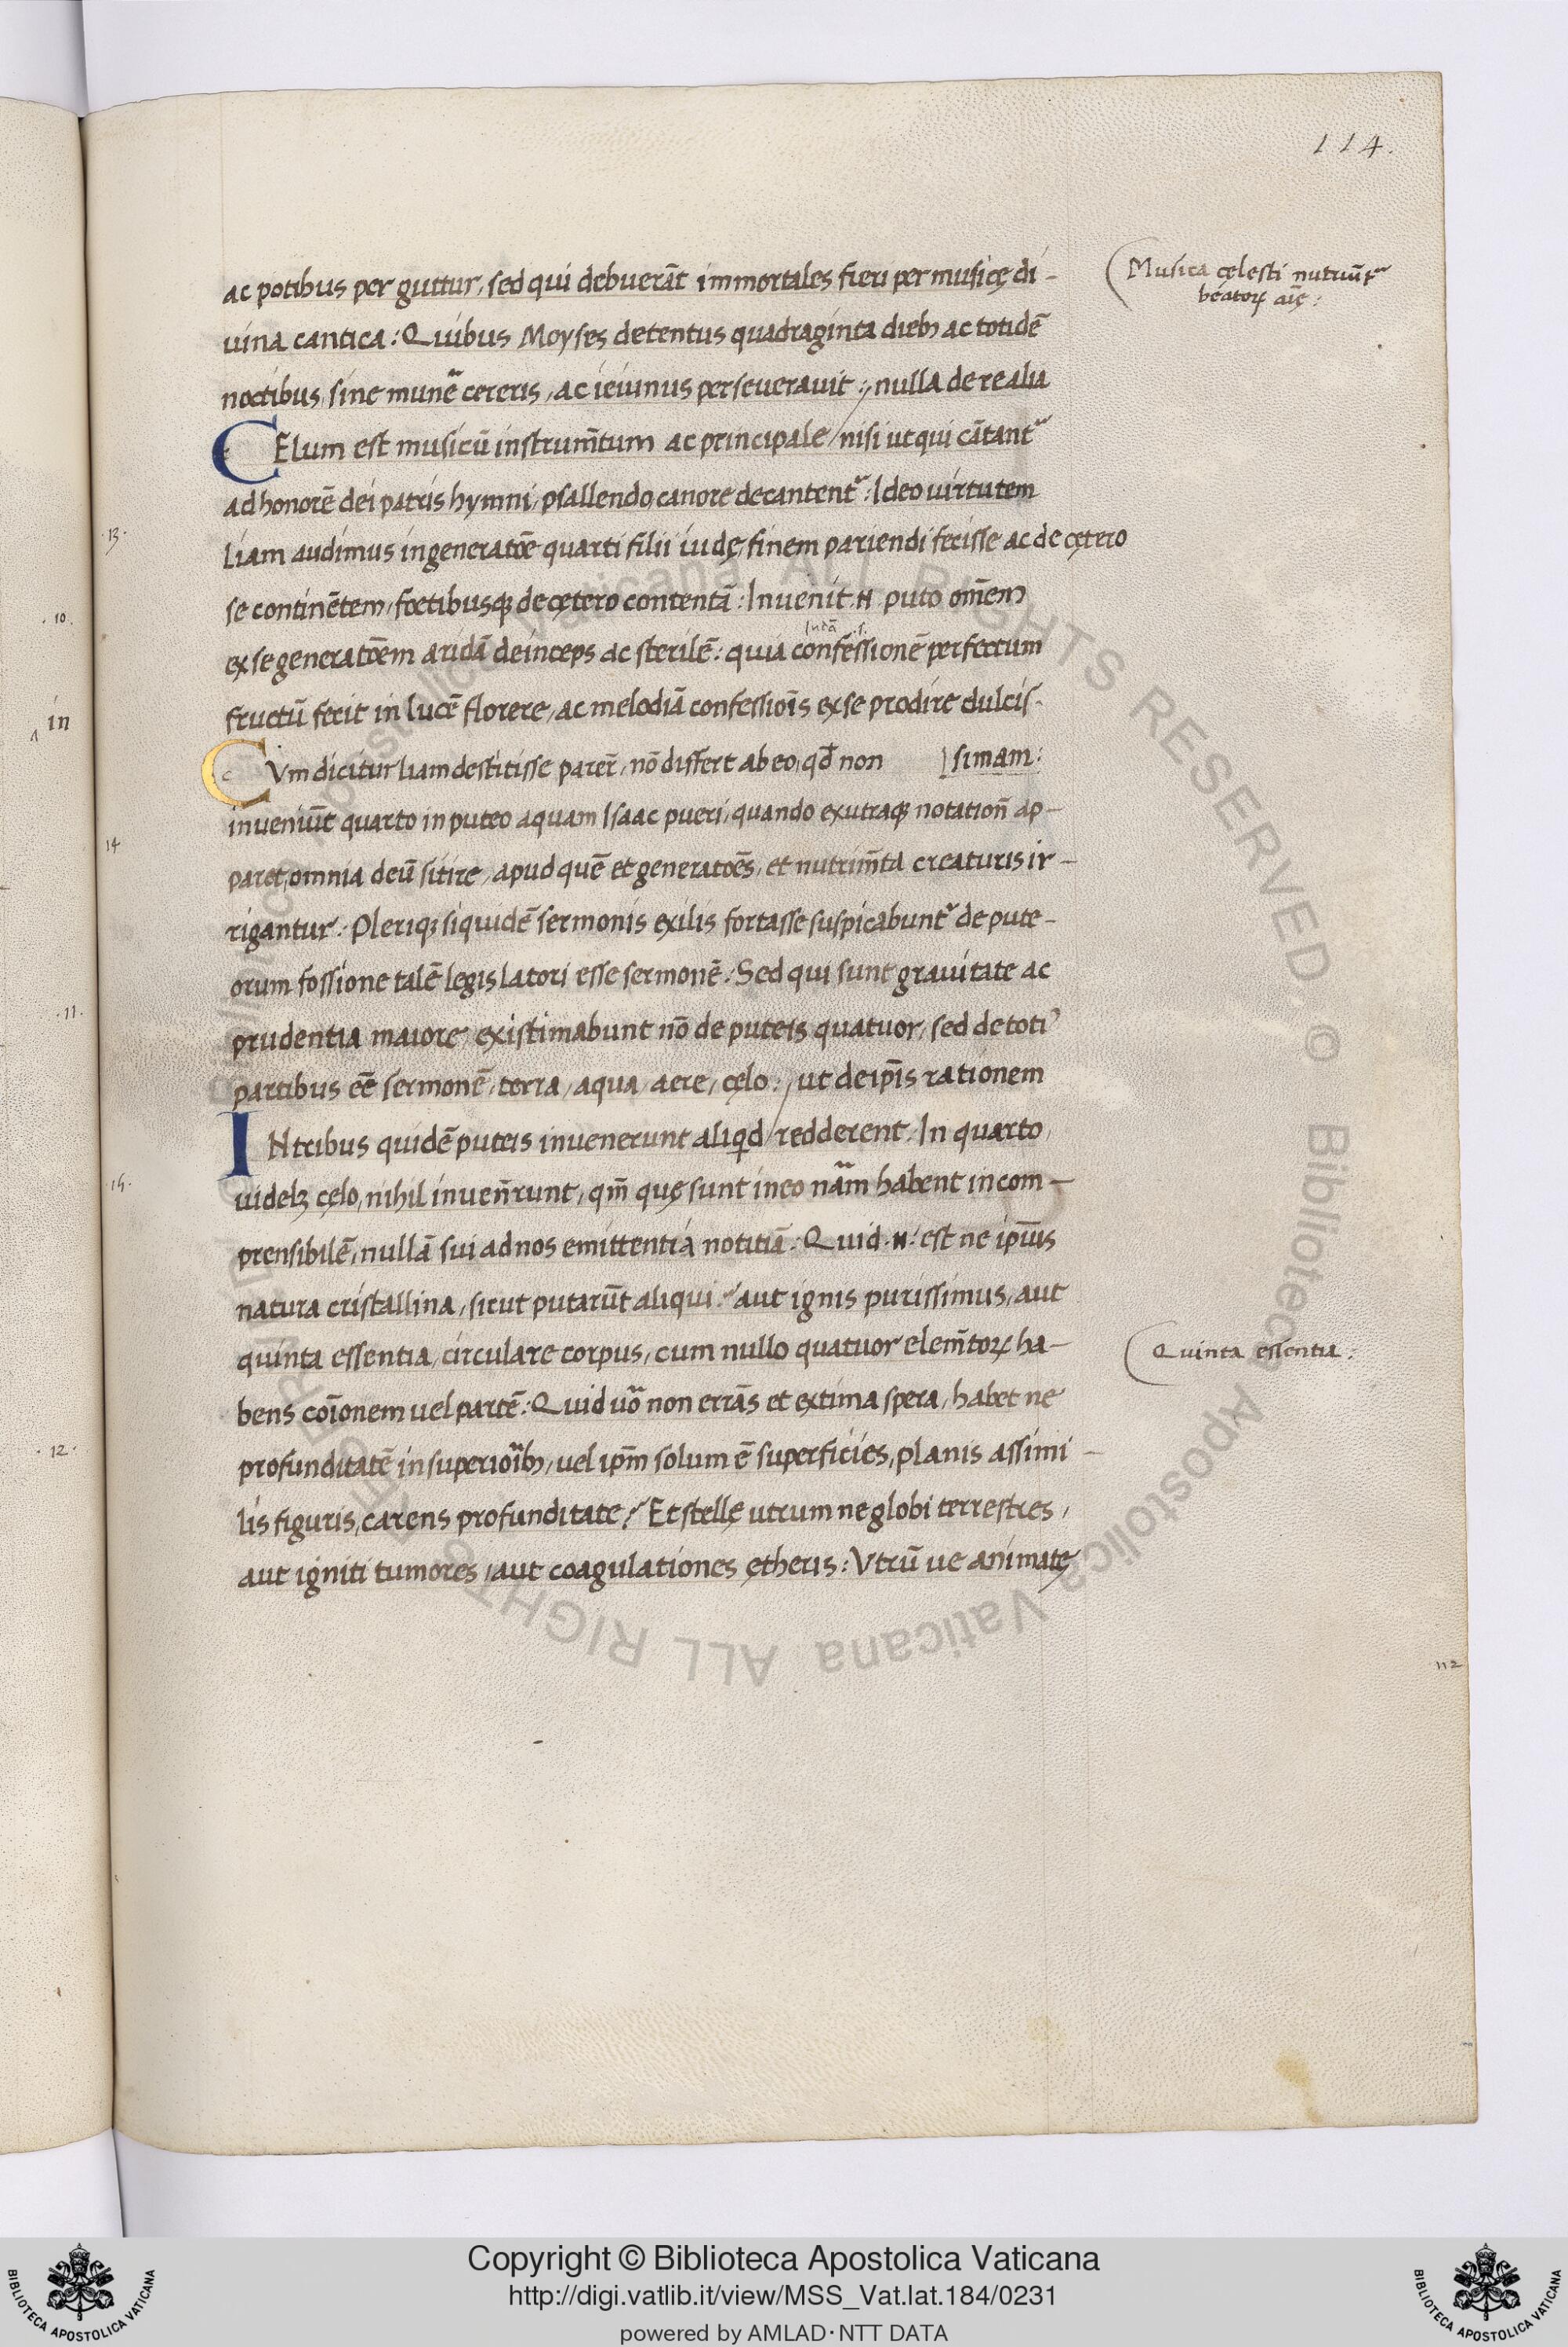 114.
ac potibus per guttur, sed qui debuerāt immortales fieri per musicę di-
uina cantica: Quibus Moyses detentus quadraginta dieb; ac totidē
noctibus, sine munē cereris, ac ieiunus perseuerauit: nulla de re alia
CElum est musicū instrum̄tum ac principale / nisi ut qui cātant᷑
ad honorē dei patris hymni, psallendo canore decantent᷑: Ideo uirtutem
liam audimus in generatōe quarti filii iudę, finem pariendi fecisse ac de cętero
se continētem, foetibusq; de cętero contentā: Inuenit .N. puto om̄em
Iudā .s.
ex se generatōem aridā deinceps ac sterilē: quia confessionē perfectum
fructū fecit in lucē florere, ac melodiā confessiōis ex se prodire dulcis-
CVm dicitur liam destitisse parer̄, nō differt ab eo, qd̄ non [simam:
inueniūt quarto in puteo aquam Isaac pueri, quando ex utraq; notation̄ ap-
paret, omnia deū sitire, apud quē et generatōes, et nutrim̄ta creaturis ir-
rigantur. Pleriq; siquidē sermonis exilis fortasse suspicabunt᷑ de pute-
orum fossione talē legislatori esse sermonē: Sed qui sunt grauitate ac
prudentia maiore, existimabunt nō de puteis quatuor, sed de toti᾽
partibus eē sermonē, terra, aqua, aere, cęlo: ut de ip̄is rationem
INtribus quidē puteis inuenerunt aliqd / redderent. In quarto,
uidelz cęlo, nihil inuen̄runt, qm̄ quę sunt in eo nām habent incom-
prensibilē, nullā sui ad nos emittentiā notitiā: Quid .N. est ne ip̄ius
natura cristallina, sicut putarūt aliqui? aut ignis purissimus, aut
quinta essentia, circulare corpus, cum nullo quatuor elem̄toꝝ ha-
bens cōionem uel partē: Quid uō non errās et extima spera, habet ne
profunditatē in superiorib; uel ip̄m solum ē superficies, planis assimi-
lis figuris, carens profunditate? Et stellę utrum ne globi terrestres,
aut igniti tumores, aut coagulationes ętheris: Vtrū ue animatę
Musica cęlesti nutriūt᷑
beatoꝝ aīę:
Quinta essentia:
.13.
14
15.
.10.
in
.11.
.12.
112
Copyright © Biblioteca Apostolica Vaticana
http://digi.vatlib.it/view/MSS_Vat.lat.184/0231
powered by AMLAD·NTT DATA
BIBLIOTECA APOSTOLICA VATICANA
BIBLIOTECA APOSTOLICA VATICANA